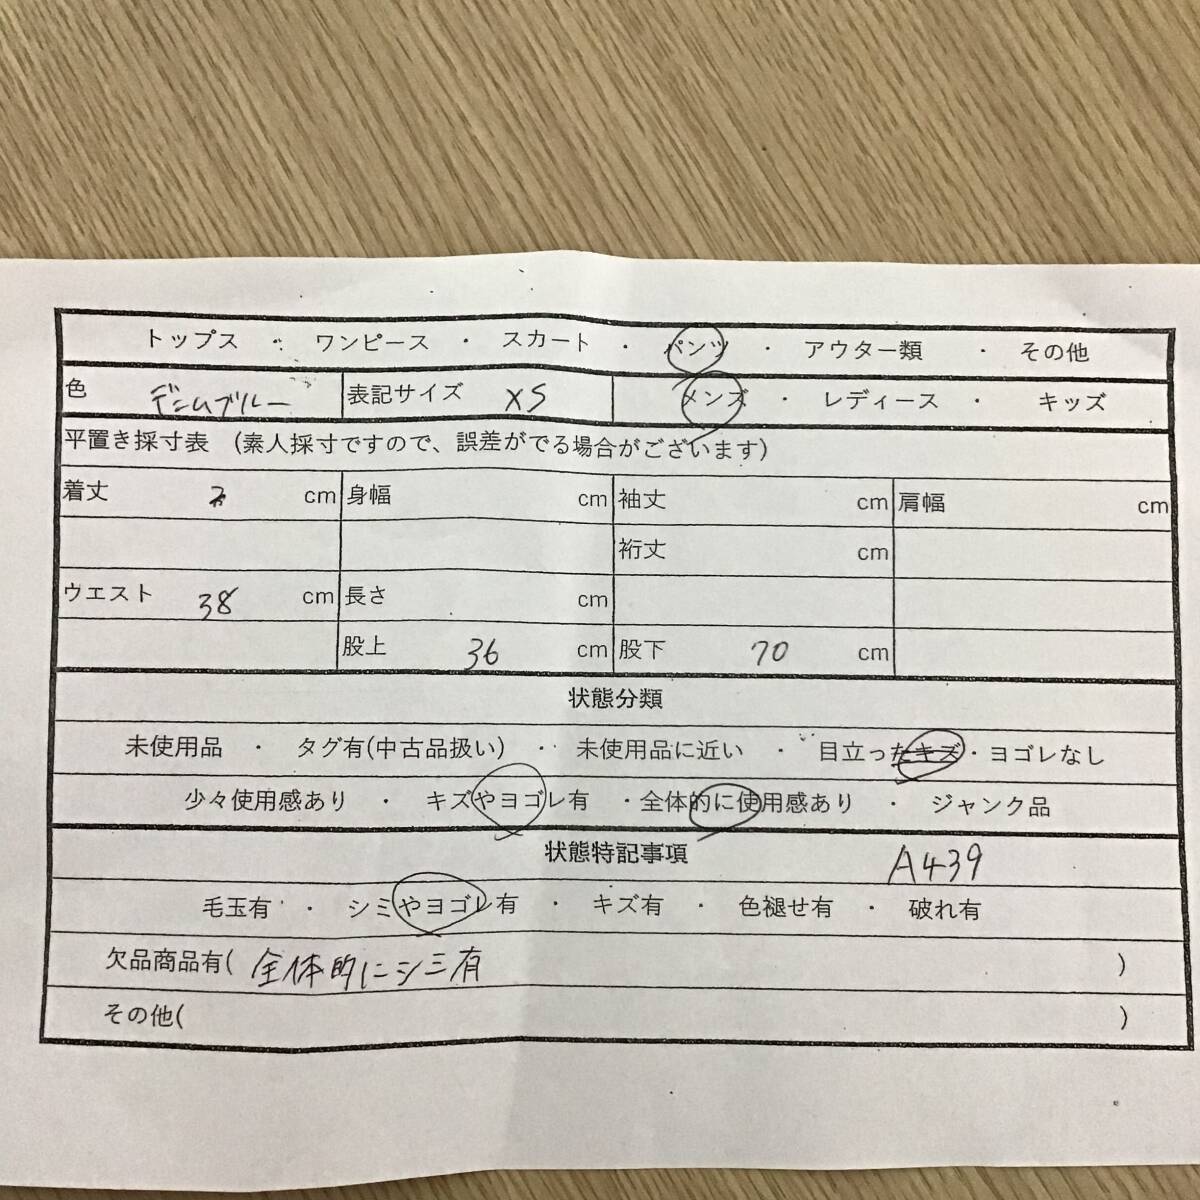 トップス ・ ワンピース ・ スカート ・ パンツ ・ アウター類 ・ その他
色 デニムブルー 表記サイズ XS メンズ ・ レディース ・ キッズ
平置き採寸表 (素人採寸ですので、誤差がでる場合がございます)
着丈 cm 身幅 cm 袖丈 cm 肩幅 cm
裄丈 cm
ウエスト 38 cm 長さ cm
股上 36 cm 股下 70 cm
状態分類
未使用品 ・ タグ有(中古品扱い) ・ 未使用品に近い ・ 目立ったキズ・ヨゴレなし
少々使用感あり ・ キズやヨゴレ有 ・全体的に使用感あり ・ ジャンク品
状態特記事項 A439
毛玉有 ・ シミやヨゴレ有 ・ キズ有 ・ 色褪せ有 ・ 破れ有
欠品商品有( 全体的にシミ有 )
その他( )